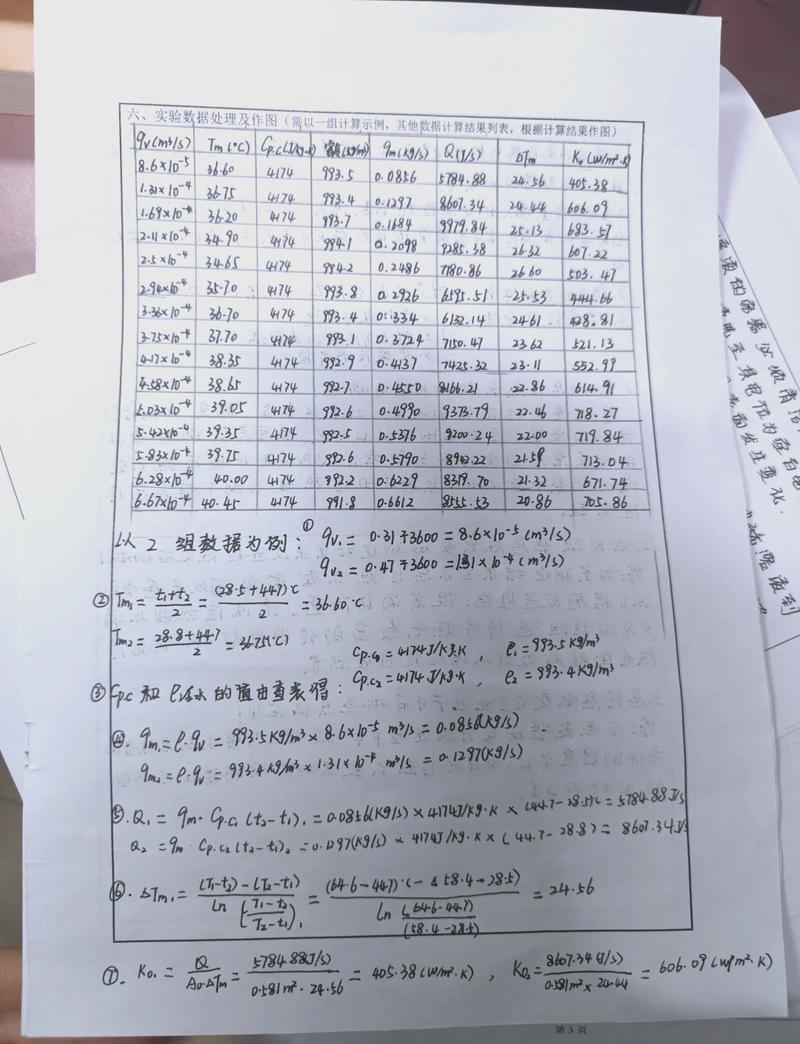 六、实验数据处理及作图（需以一组计算示例，其他数据计算结果列表，根据计算结果作图）
qv(m³/s) Tm(°C) Cp.c(J/kg·k) (kg/m³) qm(kg/s) Q(J/s) ΔTm K。(W/m²·k)
8.6×10⁻⁵ 36.60 4174 993.5 0.0856 5784.88 24.56 405.38
1.31×10⁻⁴ 36.75 4174 993.4 0.1297 8607.34 24.44 606.09
1.69×10⁻⁴ 36.20 4174 993.7 0.1684 9979.84 25.13 683.57
2.11×10⁻⁴ 34.90 4174 994.1 0.2098 9285.38 26.32 607.22
2.5×10⁻⁴ 34.65 4174 994.2 0.2486 7780.86 26.60 503.47
2.94×10⁻⁴ 35.70 4174 993.8 0.2926 6595.51 25.53 444.66
3.36×10⁻⁴ 36.70 4174 993.4 0.334 6132.14 24.61 428.81
3.75×10⁻⁴ 37.70 4174 993.1 0.3724 7150.47 23.62 521.13
4.17×10⁻⁴ 38.35 4174 992.9 0.4137 7425.32 23.11 552.99
4.58×10⁻⁴ 38.65 4174 992.7 0.4550 8166.21 22.86 614.91
5.03×10⁻⁴ 39.05 4174 992.6 0.4990 9373.79 22.46 718.27
5.42×10⁻⁴ 39.35 4174 992.5 0.5376 9200.24 22.00 719.84
5.83×10⁻⁴ 39.75 4174 992.6 0.5790 8942.22 21.59 713.04
6.28×10⁻⁴ 40.00 4174 992.2 0.6229 8319.70 21.32 671.74
6.67×10⁻⁴ 40.45 4174 991.8 0.6612 8555.53 20.86 705.86
以2组数据为例：① qv₁ = 0.31÷3600 = 8.6×10⁻⁵ (m³/s)
qv₂ = 0.47÷3600 = 1.31×10⁻⁴ (m³/s)
② Tm₁ = (t₁+t₂)/2 = (28.5+44.7)°C/2 = 36.60°C
Tm₂ = (28.8+44.7)/2 = 36.75(°C)
Cp.c₁ = 4174J/Kg.K , ρ₁ = 993.5Kg/m³
③ Cp.c 和 ρ冷水的值由查表得： Cp.c₂ = 4174J/kg·K , ρ₂ = 993.4Kg/m³
④. qm₁ = ρ·qv = 993.5Kg/m³ × 8.6×10⁻⁵ m³/s = 0.0856(KG/s)
qm₂ = ρ·qv = 993.4Kg/m³ × 1.31×10⁻⁴ m³/s = 0.1297(KG/s)
⑤. Q₁ = qm·Cp.c₁(t₂-t₁)₁ = 0.0856(KG/s) × 4174J/Kg·K × (44.7-28.5)°C = 5784.88 J/s
Q₂ = qm·Cp.c₂(t₂-t₁)₂ = 0.1297(KG/s) × 4174J/Kg·K × (44.7-28.8) = 8607.34J/s
⑥. ΔTm₁ = ((T₁-t₂)-(T₂-t₁))/ln[(T₁-t₂)/(T₂-t₁)]₁ = ((64.6-44.7)°C-(58.4-28.5))/ln((64.6-44.7)/(58.4-28.5)) = 24.56
⑦. K0₁ = Q/(A₀·ΔTm) = 5784.88(J/s)/(0.581m²·24.56) = 405.38 (W/m²·K) , K0₂ = 8607.34(J/s)/(0.581m²×24.44) = 606.09 (W/m²·K)
第 3 页